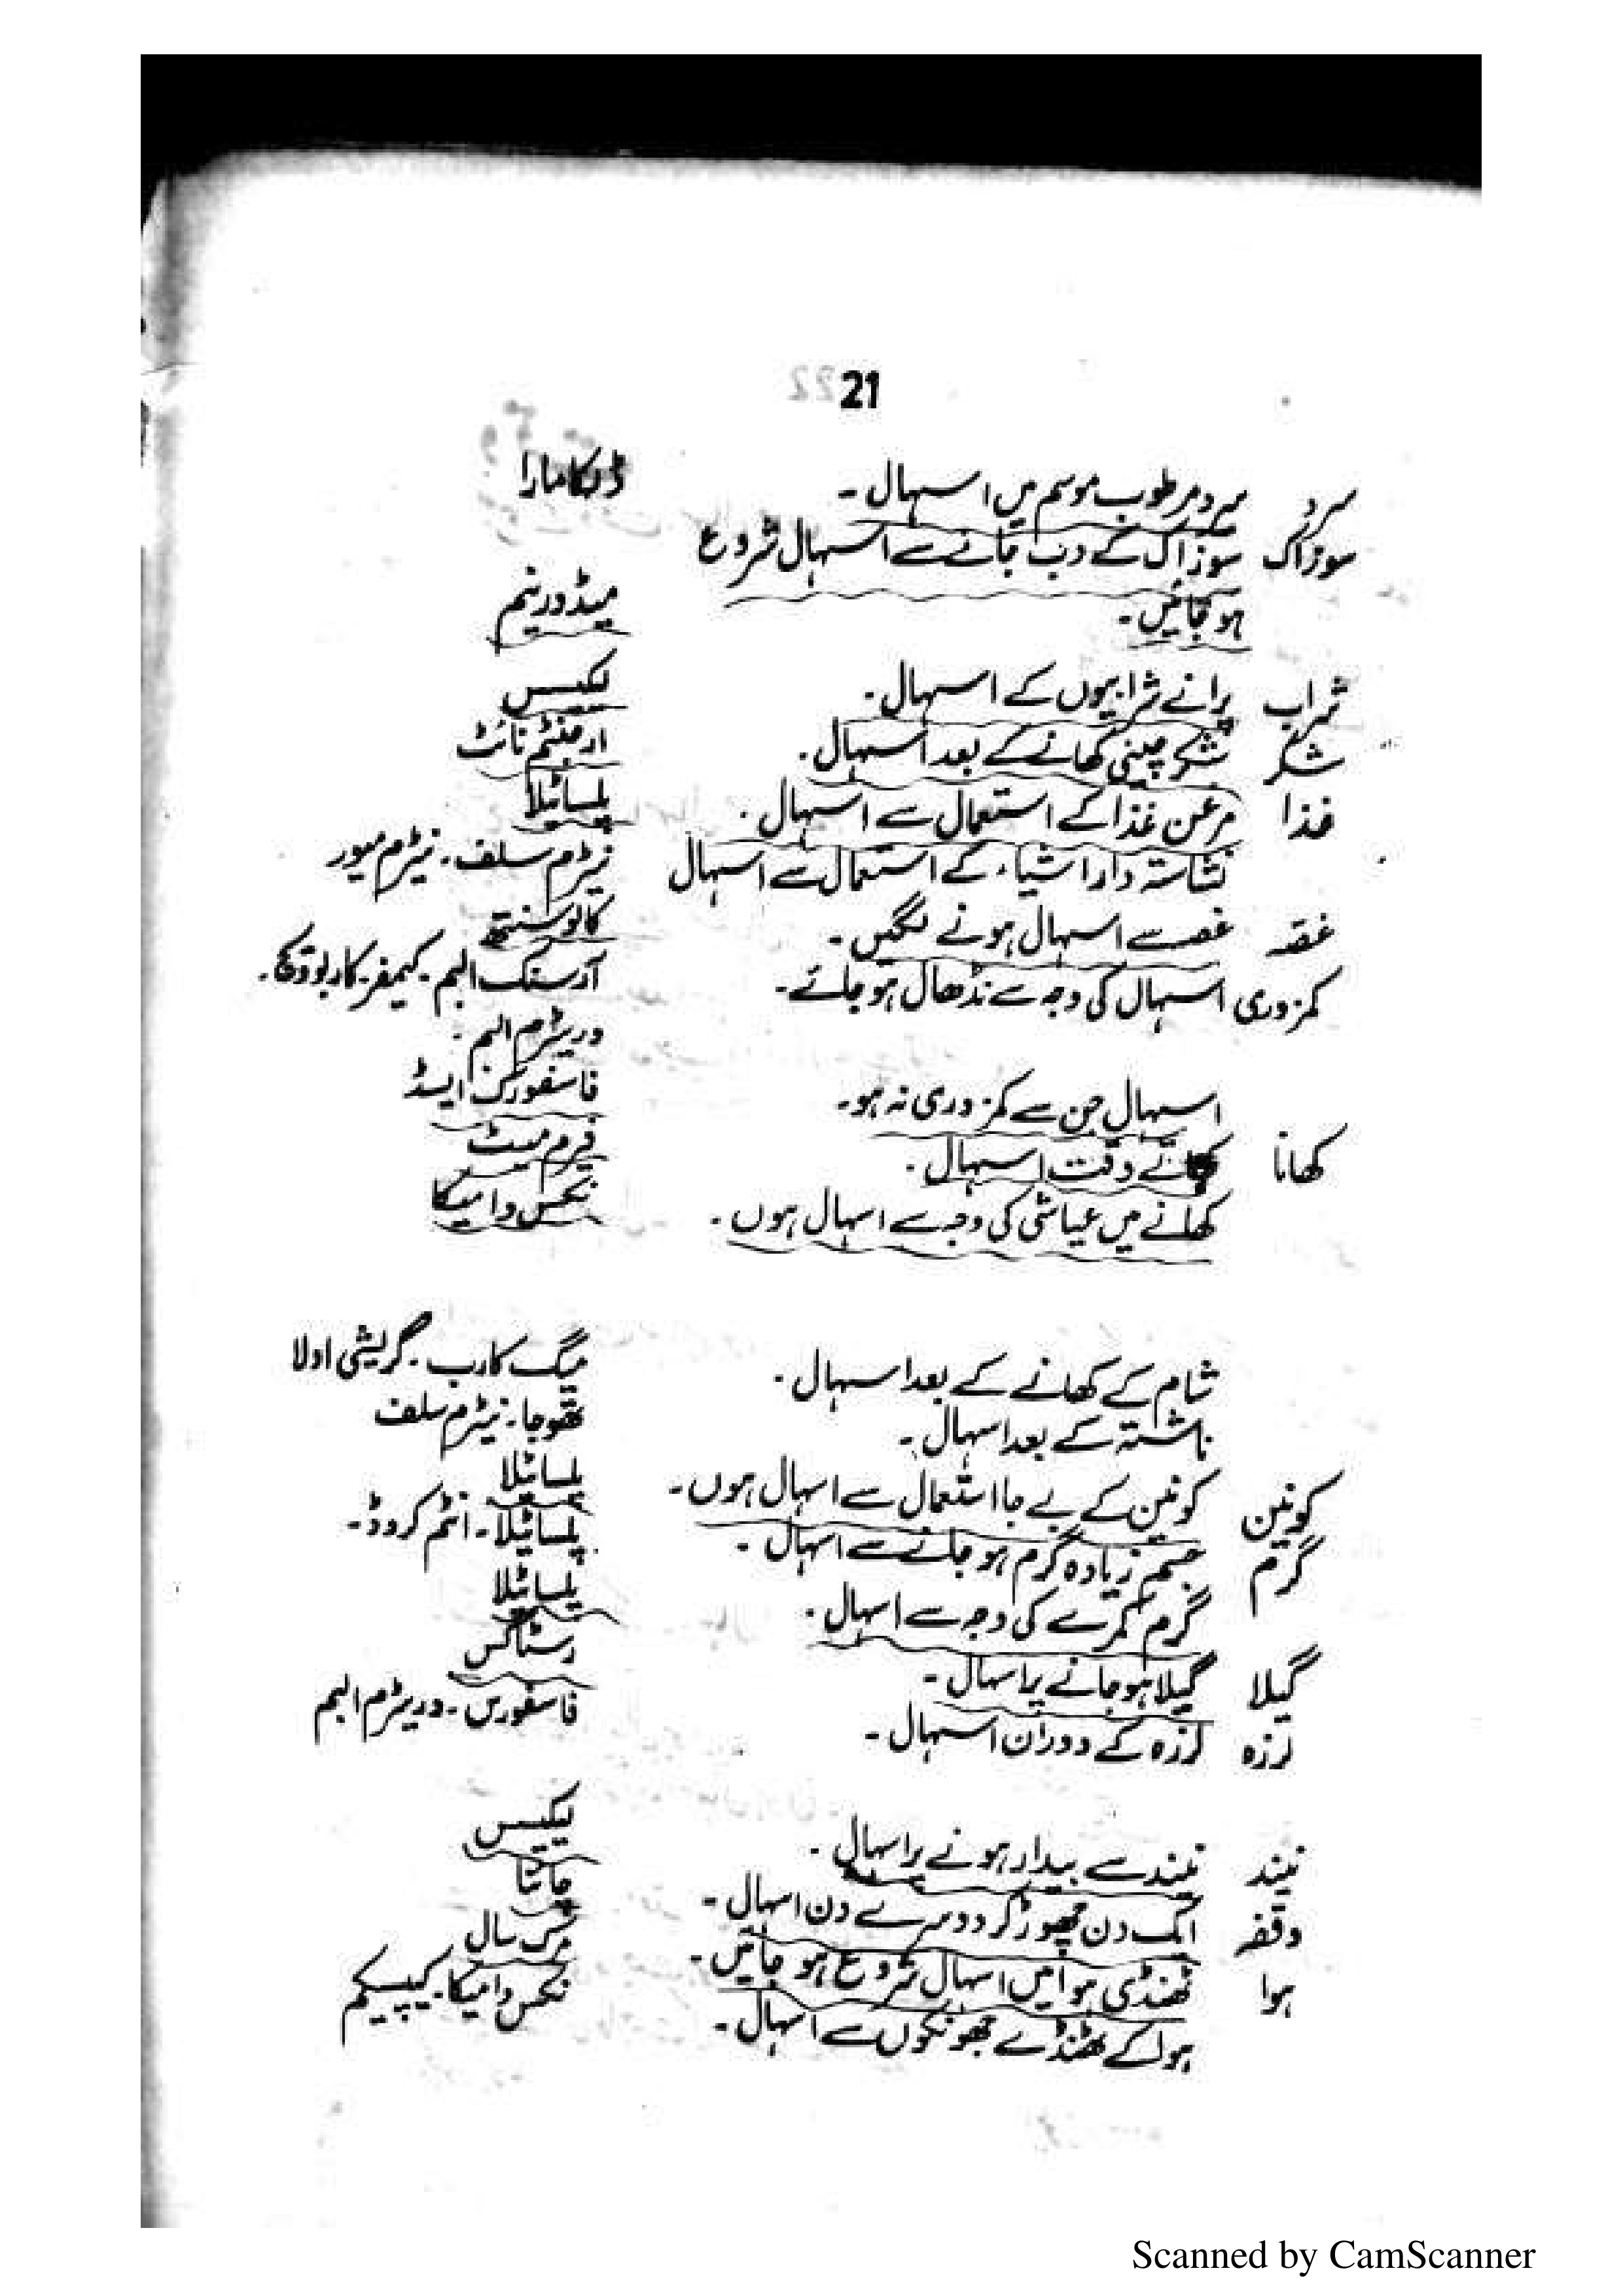 21
سرد سرد مرطوب موسم میں اسہال۔ ڈلکامارا
سوزاک سوزاک کے دب جانے سے اسہال شروع
ہو جائیں۔ میڈورینم
شراب پرانے شرابیوں کے اسہال۔ لکیسس
شکر شکر چینی کھانے کے بعد اسہال۔ ارجنٹم نائٹ
غذا مرغن غذا کے استعمال سے اسہال۔ پلساٹیلا
نشاستہ دار اشیاء کے استعمال سے اسہال نیٹرم سلف۔ نیٹرم میور
غصہ غصے سے اسہال ہونے لگیں۔ کالوسنتھ
کمزوری اسہال کی وجہ سے نڈھال ہو جائے۔ آرسنک البم۔ کیمفر۔ کاربوویج۔
وریٹرم البم۔
اسہال جن سے کمزوری نہ ہو۔ فاسفورک ایسڈ
کھانا کھاتے وقت اسہال۔ فیرم میٹ
کھانے میں عیاشی کی وجہ سے اسہال ہوں۔ نکس وامیکا
شام کے کھانے کے بعد اسہال۔ میگ کارب۔ گریشی اولا
ناشتہ کے بعد اسہال۔ تھوجا۔ نیٹرم سلف
کونین کونین کے بے جا استعمال سے اسہال ہوں۔ پلساٹیلا
گرم جسم زیادہ گرم ہو جانے سے اسہال۔ پلساٹیلا۔ انٹم کروڈ۔
گرم کمرے کی وجہ سے اسہال۔ پلساٹیلا
گیلا گیلا ہو جانے پر اسہال۔ رسٹاکس
لرزہ لرزہ کے دوران اسہال۔ فاسفورس۔ وریٹرم البم
نیند نیند سے بیدار ہونے پر اسہال۔ لیکیسس
وقفہ ایک دن چھوڑ کر دوسرے دن اسہال۔ چائنا
ہوا ٹھنڈی ہوا میں اسہال شروع ہو جائیں۔ مرک سال
ہوا کے ٹھنڈے جھونکوں سے اسہال۔ نکس وامیکا۔ کیپسیکم
Scanned by CamScanner